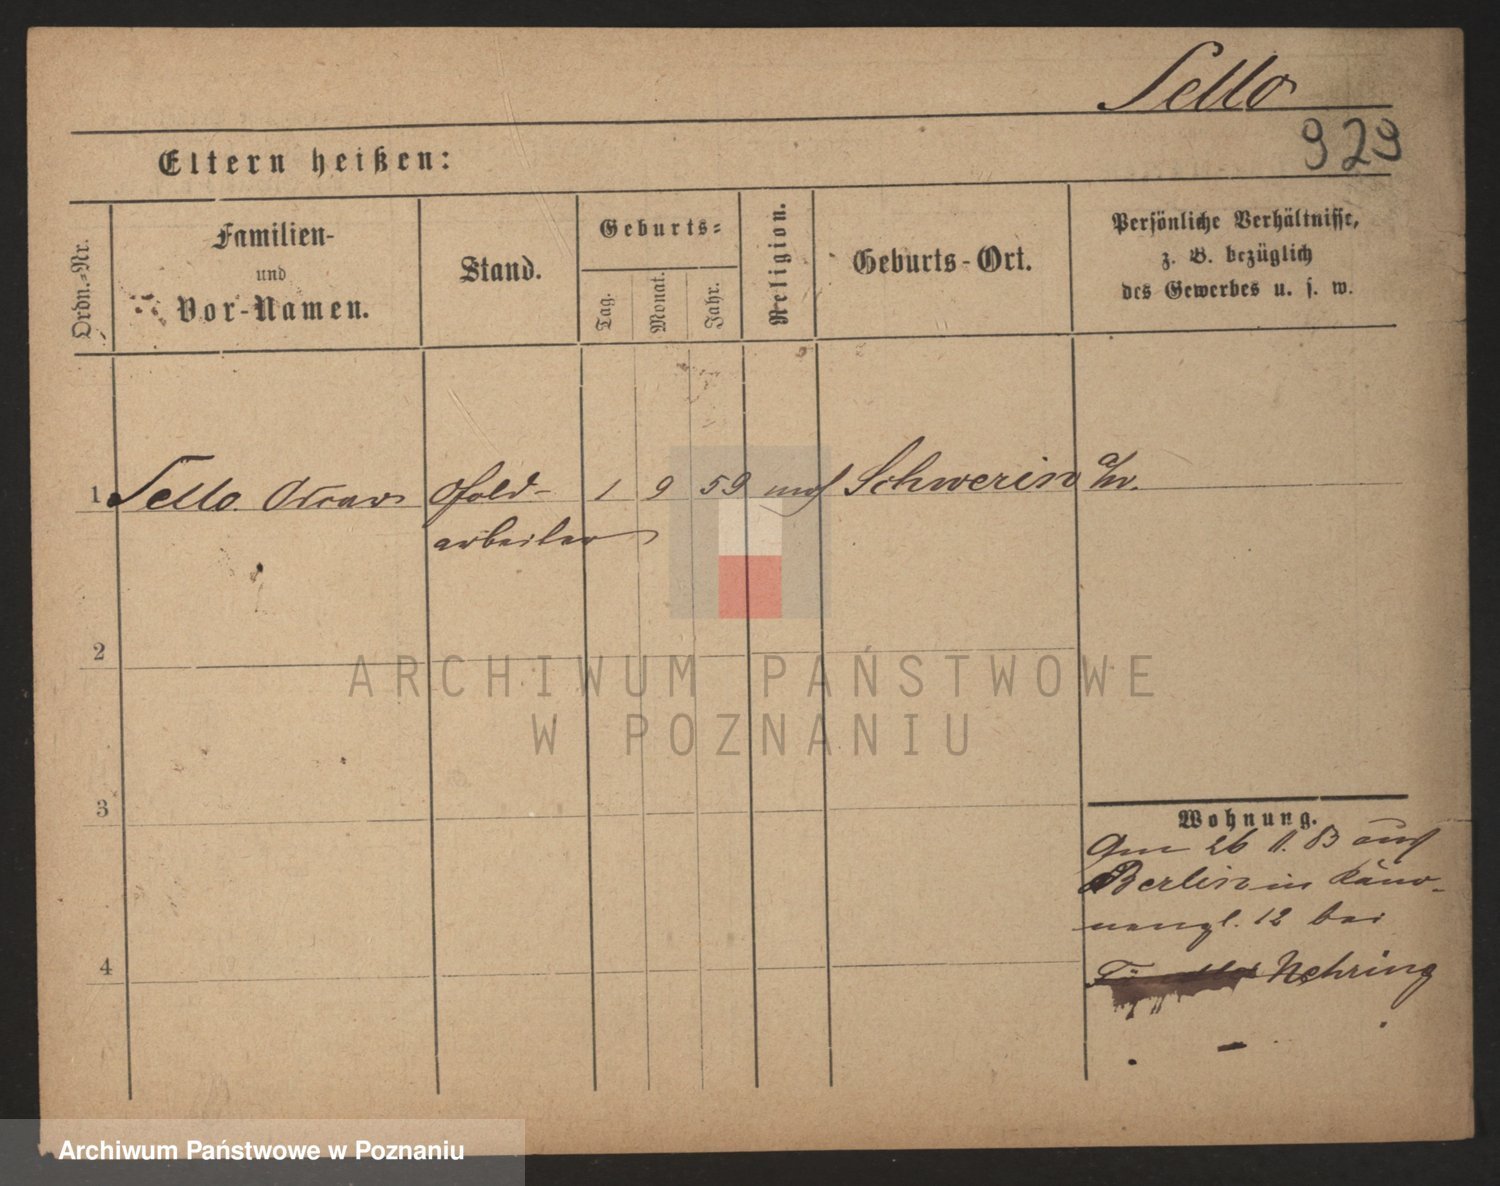 Sello
929
Eltern heißen:
Ordn.-Nr.
Familien-
und
Vor-Namen.
Stand.
Geburts-
Tag.
Monat.
Jahr.
Religion.
Geburts-Ort.
Persönliche Verhältnisse,
z. B. bezüglich
des Gewerbes u. s. w.
1 Sello Oscar Gold- 1 9 59 mos Schwerin a/W.
arbeiter
2
3
4
Wohnung.
Am 26 11. 83 aus
Berlin in
12 bei
Nehring
ARCHIWUM PAŃSTWOWE
W POZNANIU
Archiwum Państwowe w Poznaniu